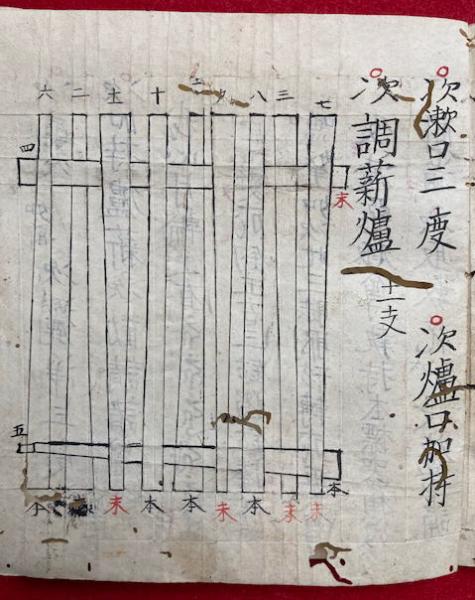 次漱口三度
次爐口加持
次調薪爐十一支
七
三
八
九
十
十一
二
六
四
末
五
本
末
末
本
末
本
本
末
本